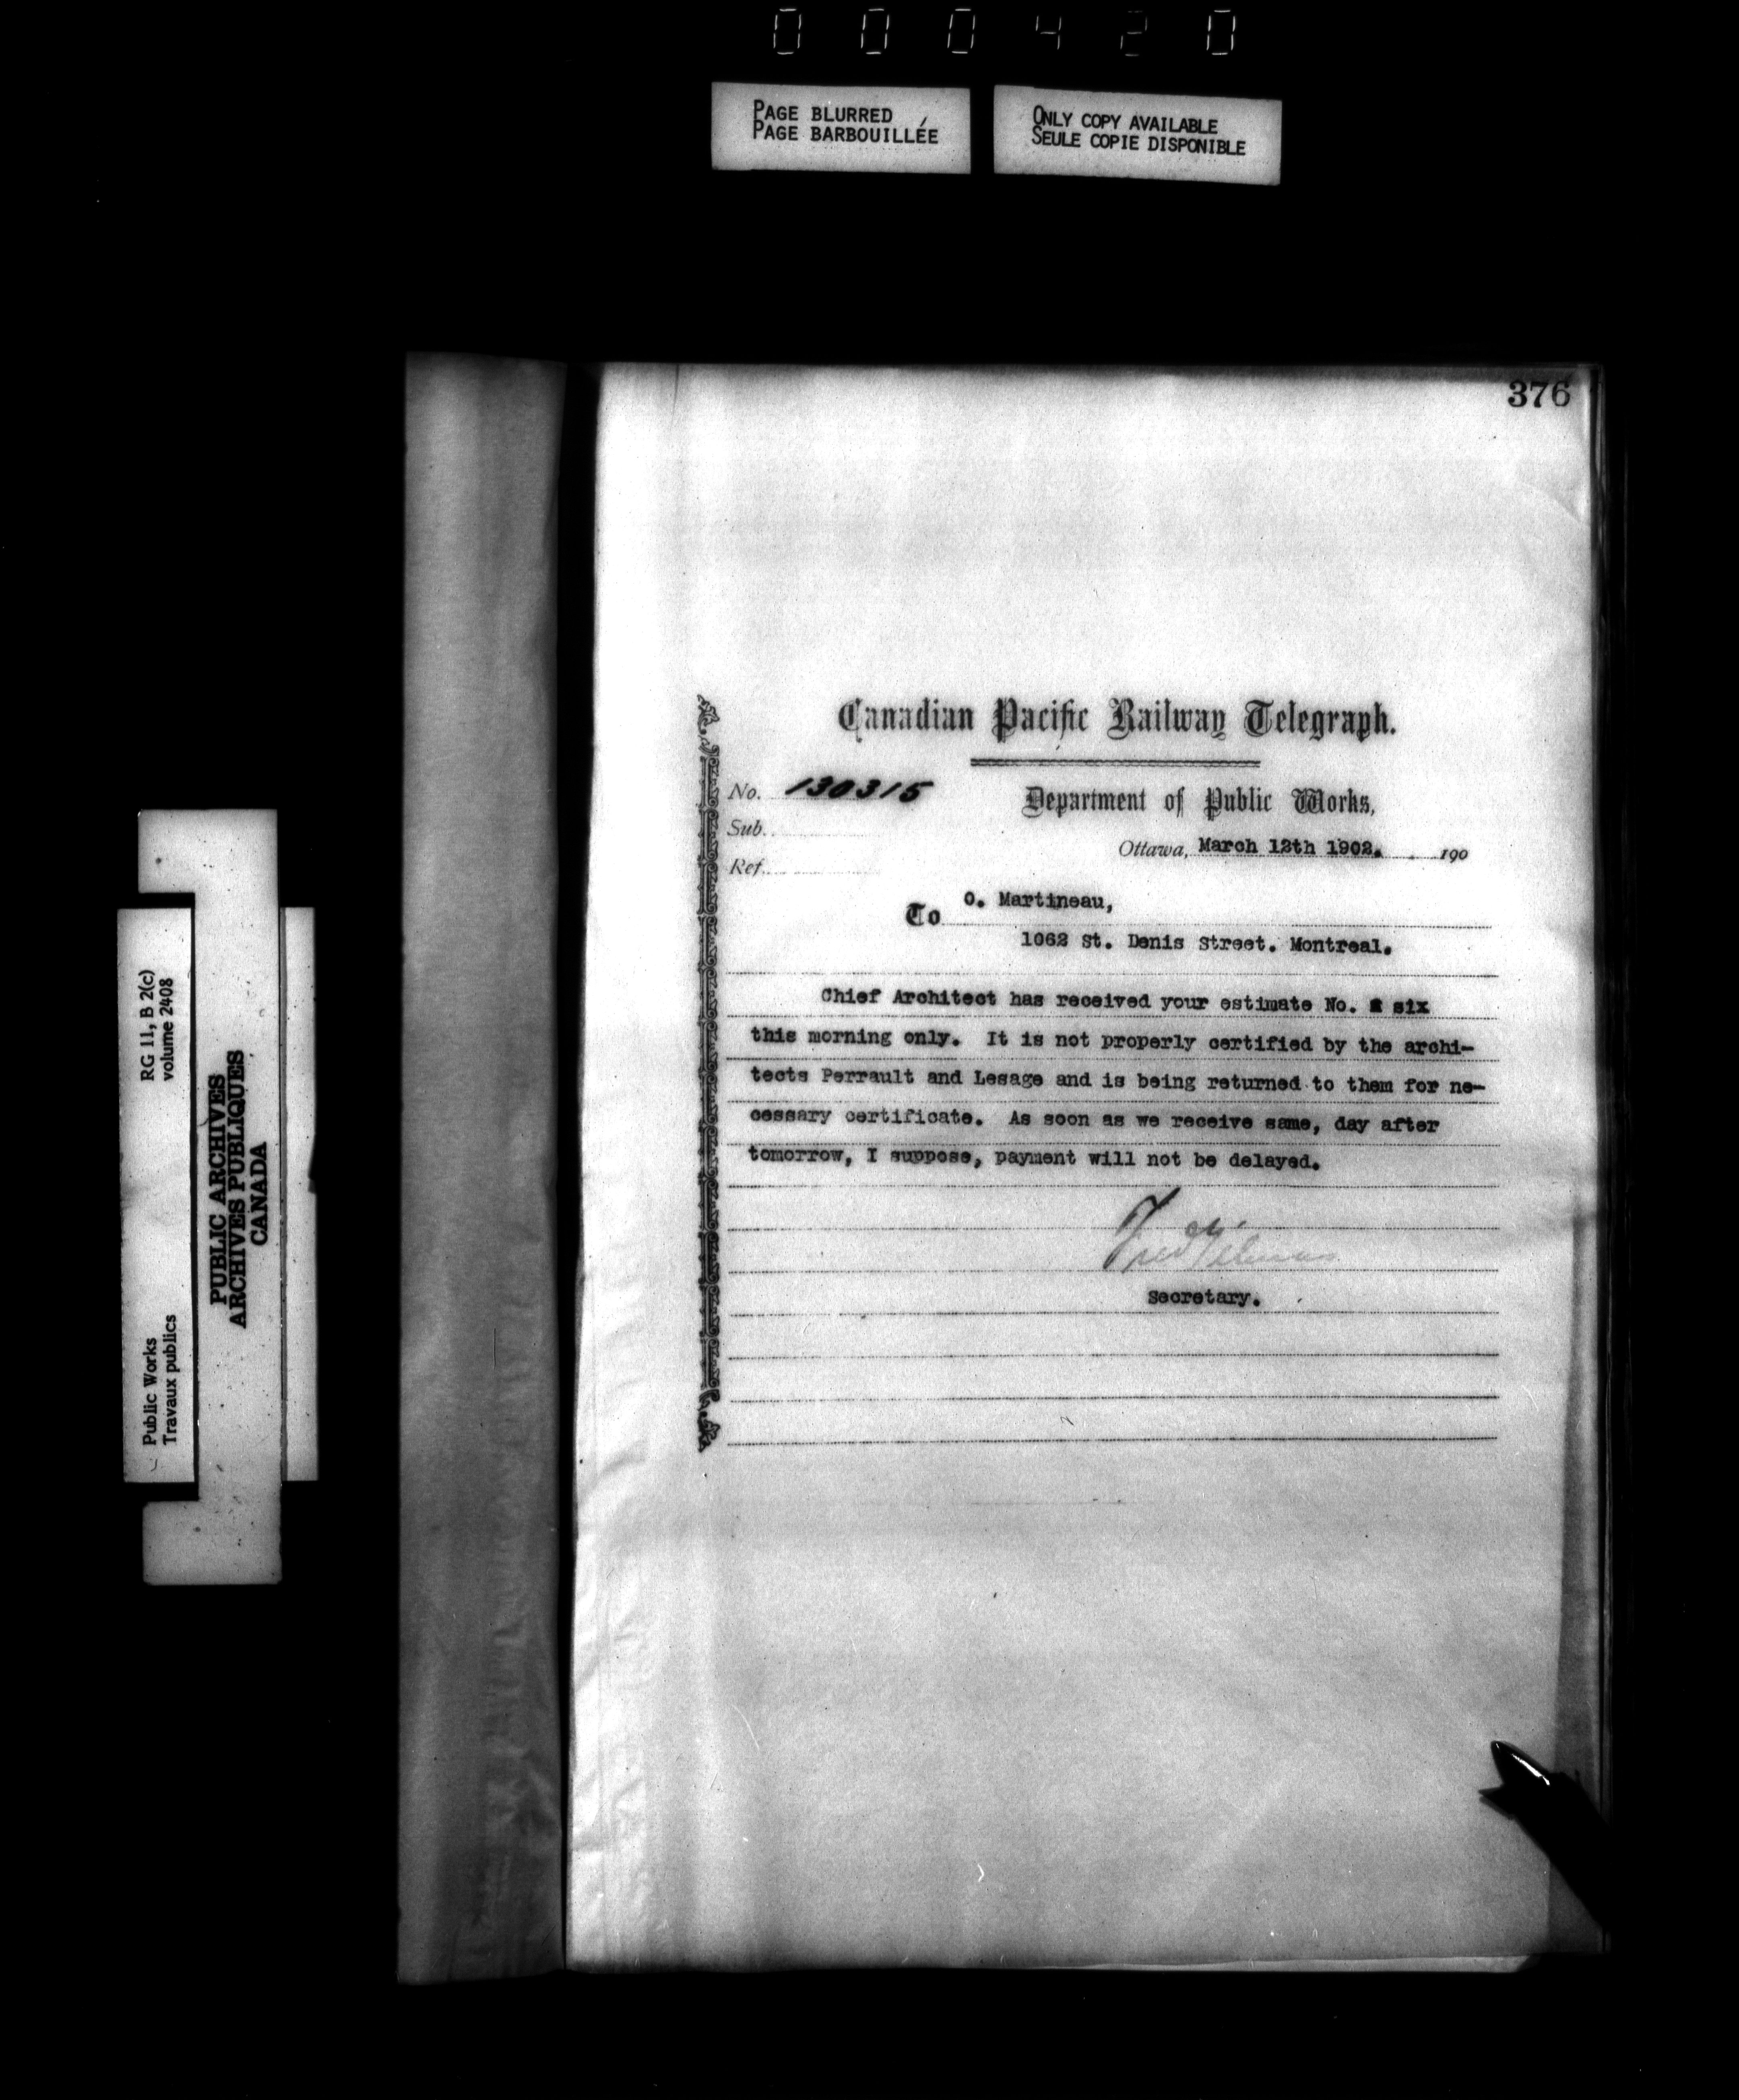 000420
PAGE BLURRED
PAGE BARBOUILLÉE
ONLY COPY AVAILABLE
SEULE COPIE DISPONIBLE
376
Canadian Pacific Railway Telegraph.
No. 130315
Department of Public Works,
Sub.
Ottawa, March 12th 1902. 190
Ref.
To O. Martineau,
1062 St. Denis Street. Montreal.
Chief Architect has received your estimate No. six
this morning only. It is not properly certified by the archi-
tects Perrault and Lesage and is being returned to them for ne-
cessary certificate. As soon as we receive same, day after
tomorrow, I suppose, payment will not be delayed.
Fred
Secretary.
RG 11, B 2(c)
volume 2408
PUBLIC ARCHIVES
ARCHIVES PUBLIQUES
CANADA
Public Works
Travaux publics